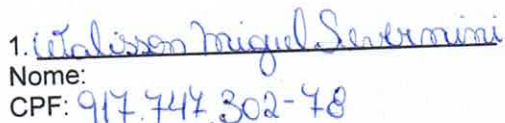 1. Walisson Miguel Severnini
Nome:
CPF: 917.747.302-78